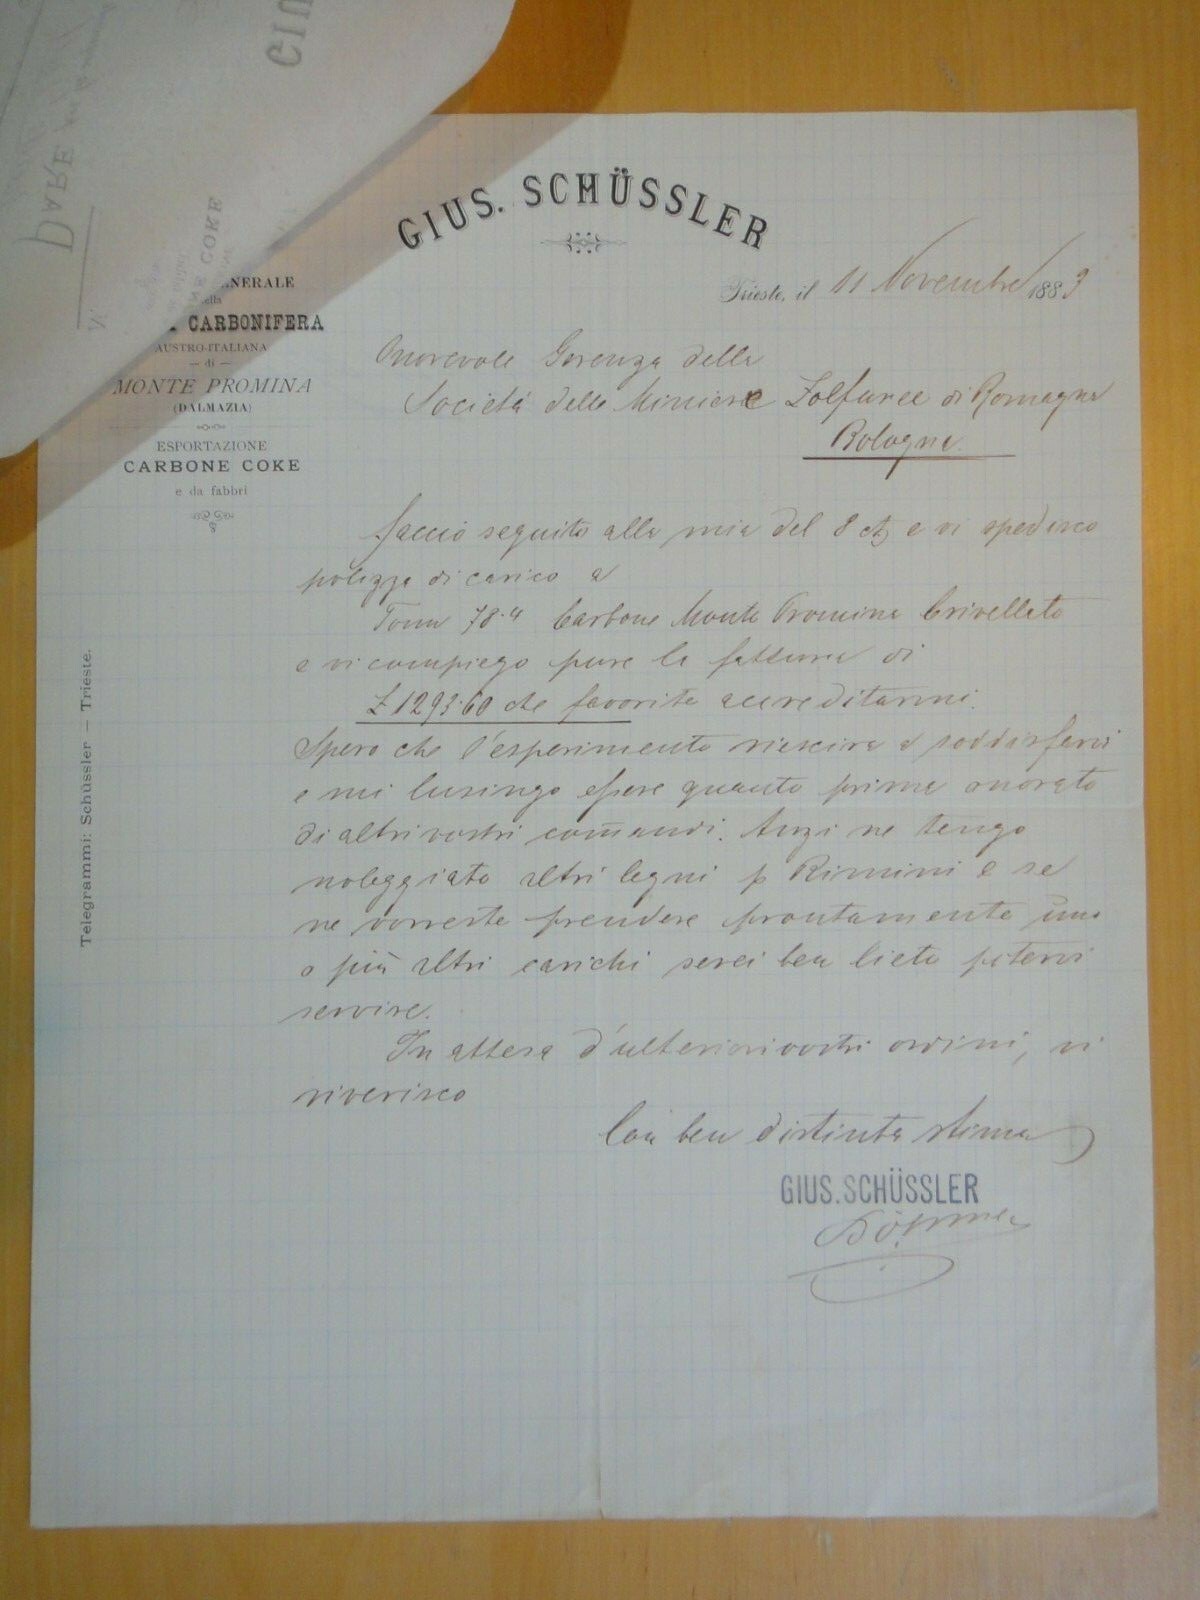 GIUS. SCHÜSSLER
Trieste, il 11 Novembre 1883
NERALE
della
CARBONIFERA
AUSTRO-ITALIANA
— di —
MONTE PROMINA
(DALMAZIA)
ESPORTAZIONE
CARBONE COKE
e da fabbri
Telegrammi: Schüssler — Trieste.
Onorevole Gerenza della
Società delle Miniere Zolfuree di Romagna
Bologna.
Faccio seguito alla mia del 8 ct, e vi spedisco
polizza di carico a
Tonn 78.4 Carbone Monte Promina Crivellato
e vi compiego pure la fattura di
£ 1293.60 che favorite accreditarmi.
Spero che l'esperimento riescira a soddisfarvi
e mi lusingo essere quanto prima onorato
di altri vostri com̃andi. Anzi ne tengo
noleggiato altri legni p Rimini e se
ne vorreste prendere prontamente uno
o più altri carichi serei ben lieto potervi
servire.
In attesa d'ulteriori vostri ordini, vi
riverisco
Con ben distinta stima
GIUS. SCHÜSSLER
DARE
GIU
COKE